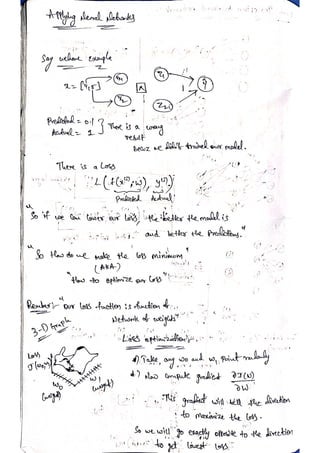 Applying Neural Networks
Say we have example
x = [4,5]
x1
x2
z1
z2,1
ŷ
1
Predicted = 0.1
Actual = 1
There is a wrong
result
becuz we didn't trained our model.
There is a Loss
L (f(x(i); W), y(i))
Predicted Actual
"So if we can lower our loss, the better the model is
and better the Predictions."
"So How do we make the loss minimum"
(AKA)
"How to optimize our Loss"
Remember: "Our loss function is function of
Network of weights"
3-D Graph
Loss optimization:-
Loss
J(w0,w1)
w0
(weight)
w1
(weight)
1) Take any w0 and w1 point randomly
2) Now compute gradient ∂J(W)
∂W
This gradient will tell the direction
to maximize the loss.
So we will go exactly opposite to the direction
to get lowest loss